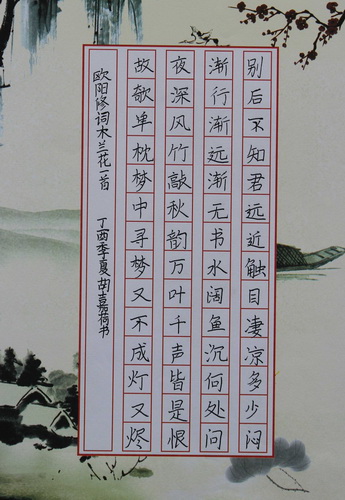 别后不知君远近触目凄凉多少闷
渐行渐远渐无书水阔鱼沉何处问
夜深风竹敲秋韵万叶千声皆是恨
故欹单枕梦中寻梦又不成灯又烬
欧阳修词木兰花一首 丁酉季夏胡嘉荷书